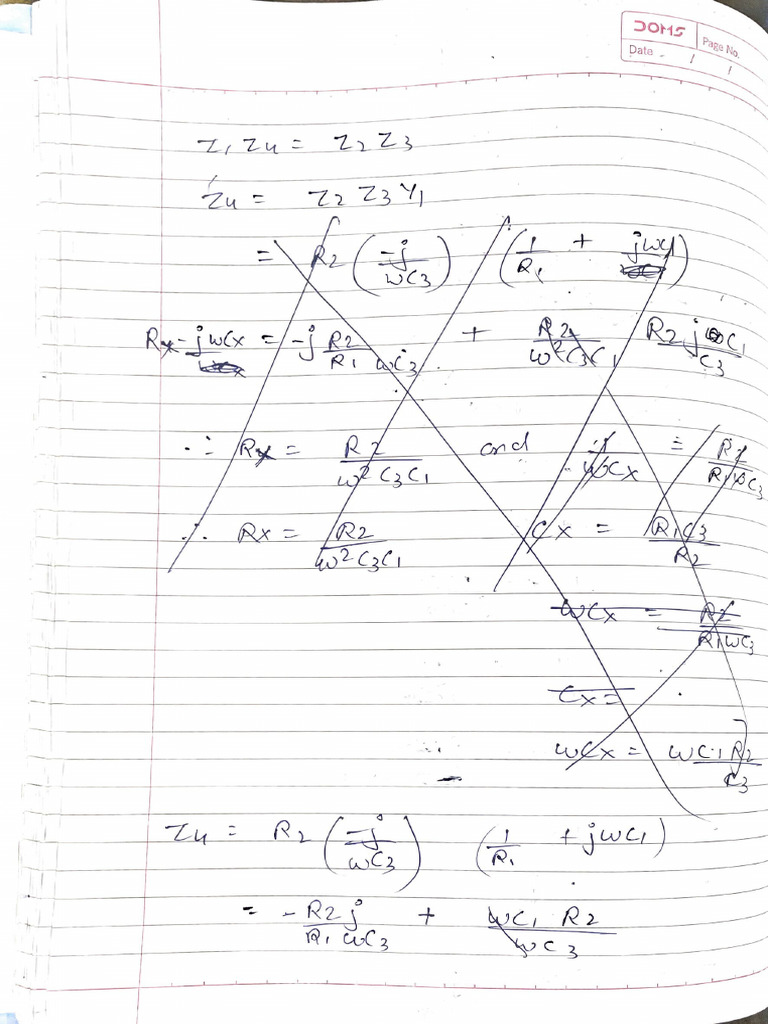 DOMS
Page No.
Date / /
Z1 Z4 = Z2 Z3
Z4 = Z2 Z3 Y1
= R2 (-j/ωC3) (1/R1 + jωC1)
Rx - jωCx = -j R2/R1 ωC3 + R2/ω²C3C1 R2 jωC1/C3
∴ Rx = R2/ω²C3C1 and -1/ωCx = R2/R1ωC3
∴ Rx = R2/ω²C3C1 Cx = R1C3/R2
ωCx = R2/R1ωC3
Cx =
ωCx = ωC1R2/C3
Z4 = R2 (-j/ωC3) (1/R1 + jωC1)
= -R2 j/R1 ωC3 + ωC1 R2/ωC3